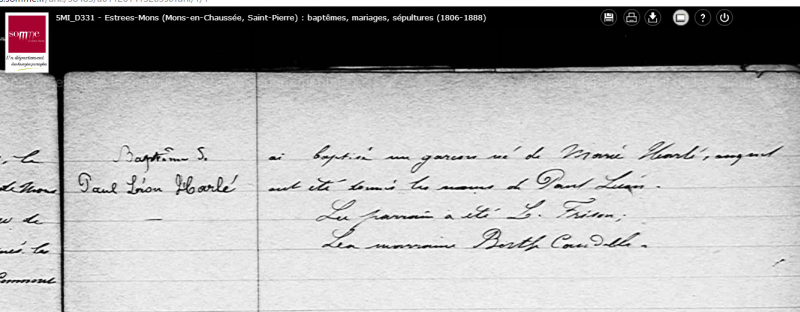 5MI_D331 - Estrees-Mons (Mons-en-Chaussée, Saint-Pierre) : baptêmes, mariages, sépultures (1806-1888)
somme
Un département
, le
Baptême 5.
ai baptisé un garçon né de Marié Harlé, auquel
de Mons
Paul Léon Harlé
ont été donnés les noms de Paul Léon.
de
—
Le parrain a été L. Frison;
les
La marraine Berthe